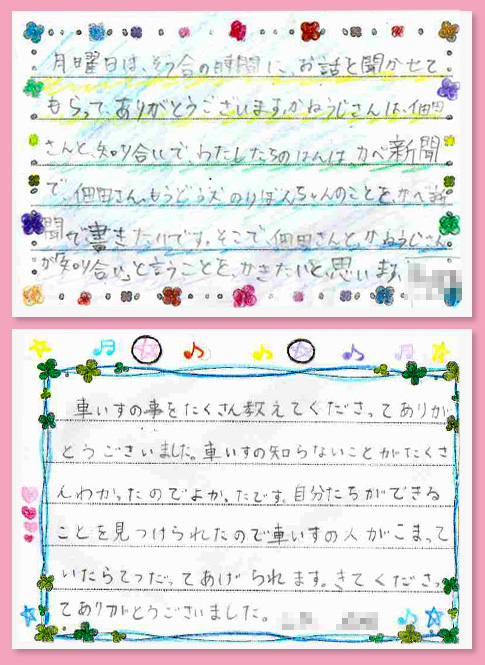 月曜日は、そう合の時間に、お話を聞かせて
もらって、ありがとうございます。かねうじさんは、佃田
さんと、知り合いで、わたしたちのはんは、かべ新聞
で、佃田さん、もうどう犬のりぼんちゃんのことを、かべ新
聞で書きたいです。そこで、佃田さんと、かねうじさん
が「知り合い」と言うことを、かきたいと、思います。
車いすの事をたくさん教えてくださってありが
とうございました。車いすの知らないことがたくさ
んわかったのでよかったです。自分たちができる
ことを見つけられたので車いすの人がこまって
いたらてつだってあげられます。きてくださっ
てありがとうございました。